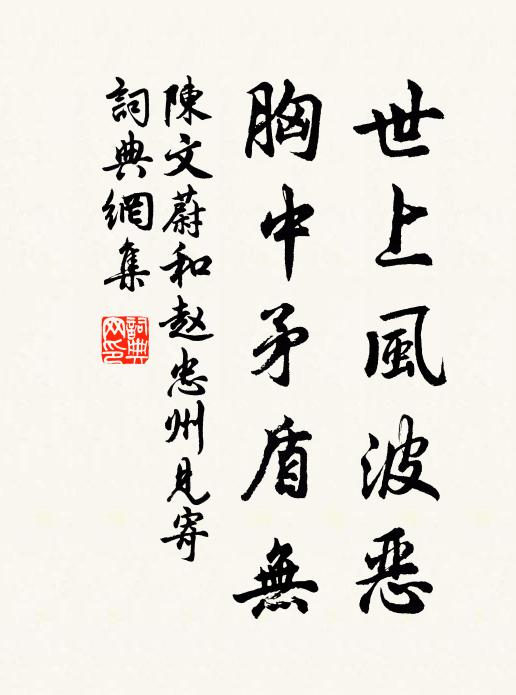 世上風波惡
胸中矛盾無
陳文蔚和赵忠州見寄
詞典網集
詞典网印